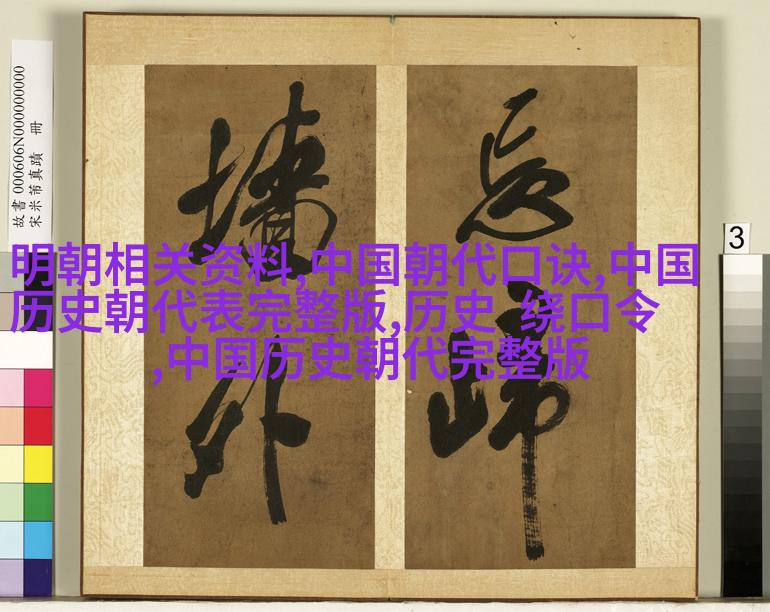 故書 000606N000000000
宋米芾真蹟 冊
忘歸
墻外
明朝相关资料,中国朝代口诀,中国
历史朝代表完整版,历史 绕口令
,中国历史朝代完整版
3